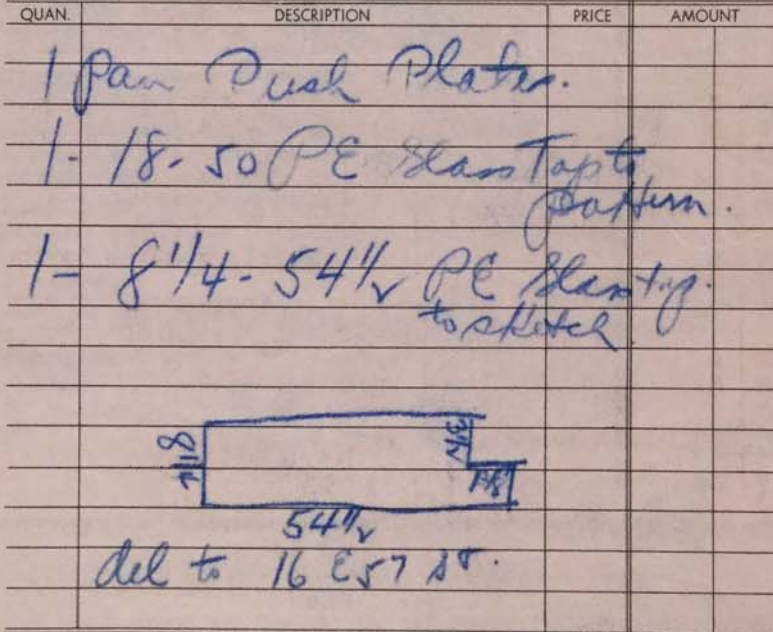 QUAN. DESCRIPTION PRICE AMOUNT
1 Pair Push Plates.
1- 18-50 PE Glass Top to
pattern.
1- 8 1/4 - 54 1/2 PE Glass top.
to sketch
8 1/4
54 1/2
del to 16 E 57 St.